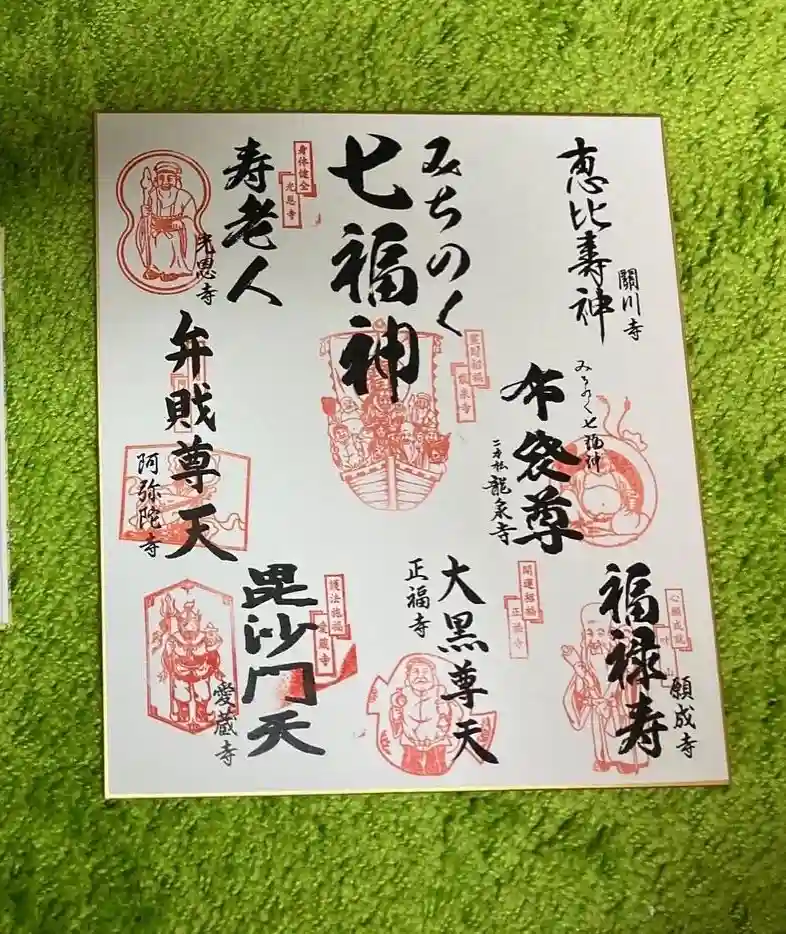 恵比寿神
關川寺
みちのく
七福神
身体健全
光恩寺
寿老人
光恩寺
みちのく七福神
布袋尊
二本松 龍泉寺
龍泉寺
弁戝尊天
阿弥陀寺
心願成就
福禄寿
願成寺
開運招福
正福寺
大黒尊天
正福寺
護法施福
愛蔵寺
毘沙門天
愛蔵寺